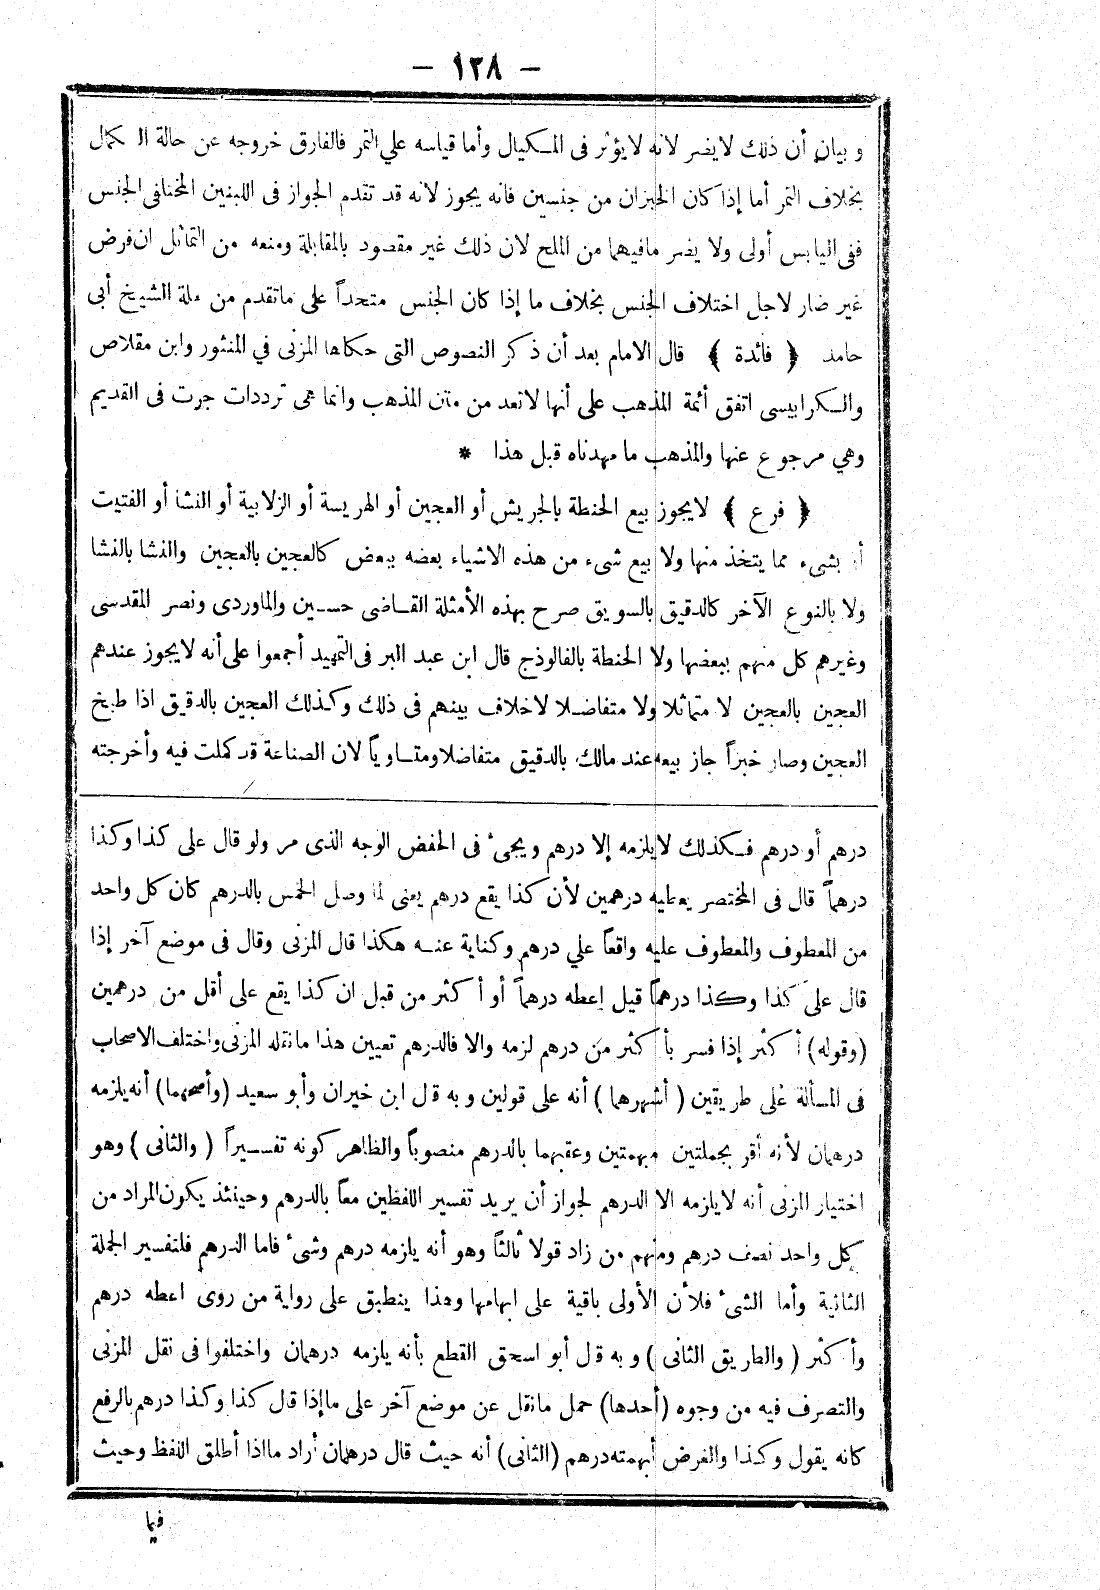 — ١٢٨ —
وبيان أن ذلك لا يضر لانه لا يؤثر فى المكيال وأما قياسه علي التمر فالفارق خروجه عن حالة الكمال
بخلاف التمر أما إذا كان الخبزان من جنسين فانه يجوز لانه قد تقدم الجواز فى اللبنين المختلفى الجنس
ففى اليابس أولى ولا يضر مافيهما من الملح لان ذلك غير مقصود بالمقابلة ومنعه من التماثل ان فرض
غير ضار لاجل اختلاف الجنس بخلاف ما إذا كان الجنس متحداً على ماتقدم من علة الشيخ أبى
حامد ﴿ فائدة ﴾ قال الامام بعد أن ذكر النصوص التى حكاها المزنى في المنثور وابن مقلاص
والكرابيسى اتفق أئمة المذهب على أنها لاتعد من متن المذهب وانما هى ترددات جرت فى القديم
وهي مرجوع عنها والمذهب ما مهدناه قبل هذا *
﴿ فرع ﴾ لايجوز بيع الحنطة بالجريش أو العجين أو الهريسة أو الزلابية أو النشا أو الفتيت
أو بشىء مما يتخذ منها ولا بيع شىء من هذه الاشياء بعضه ببعض كالعجين بالعجين والنشا بالنشا
ولا بالنوع الآخر كالدقيق بالسويق صرح بهذه الأمثلة القاضى حسين والماوردى ونصر المقدسى
وغيرهم كل منهم ببعضها ولا الحنطة بالفالوذج قال ابن عبد البر فى التمهيد أجمعوا على أنه لايجوز عندهم
العجين بالعجين لا متماثلا ولا متفاضلا لاخلاف بينهم فى ذلك وكذلك العجين بالدقيق اذا طبخ
العجين وصار خبزاً جاز بيعه عند مالك بالدقيق متفاضلا ومتساوياً لان الصناعة قد كملت فيه وأخرجته
درهم أو درهم فكذلك لايلزمه إلا درهم ويجىء فى الخفض الوجه الذى مر ولو قال على كذا وكذا
درهماً قال فى المختصر يعطيه درهمين لأن كذا يقع درهم يعنى لما وصل الخمس بالدرهم كان كل واحد
من المعطوف والمعطوف عليه واقعاً علي درهم وكناية عنه هكذا قال المزنى وقال فى موضع آخر إذا
قال على كذا وكذا درهماً قيل إعطه درهماً أو أكثر من قبل ان كذا يقع على أقل من درهمين
(وقوله) أكثر إذا فسر بأكثر من درهم لزمه والا فالدرهم تعيين هذا مانقله المزنى واختلف الاصحاب
فى المسألة على طريقين (أشهرهما) أنه على قولين وبه قال ابن خيران وأبو سعيد (وأصحهما) أنه يلزمه
درهمان لأنه أقر بجملتين مبهمتين وعقبهما بالدرهم منصوباً والظاهر كونه تفسيراً (والثانى) وهو
اختيار المزنى أنه لايلزمه الا الدرهم لجواز أن يريد تفسير اللفظين معاً بالدرهم وحينئذ يكون المراد من
كل واحد نصف درهم ومنهم من زاد قولا ثالثاً وهو أنه يلزمه درهم وشىء فاما الدرهم فلتفسير الجملة
الثانية وأما الشىء فلأن الأولى باقية على ابهامها وهذا ينطبق على رواية من روى اعطه درهم
وأكثر (والطريق الثانى) وبه قال أبو اسحق القطع بأنه يلزمه درهمان واختلفوا فى نقل المزنى
والتصرف فيه من وجوه (أحدها) حمل مانقل عن موضع آخر على ماإذا قال كذا وكذا درهم بالرفع
كانه يقول وكذا والغرض أبهمته درهم (الثانى) أنه حيث قال درهمان أراد مااذا أطلق اللفظ وحيث
فيما